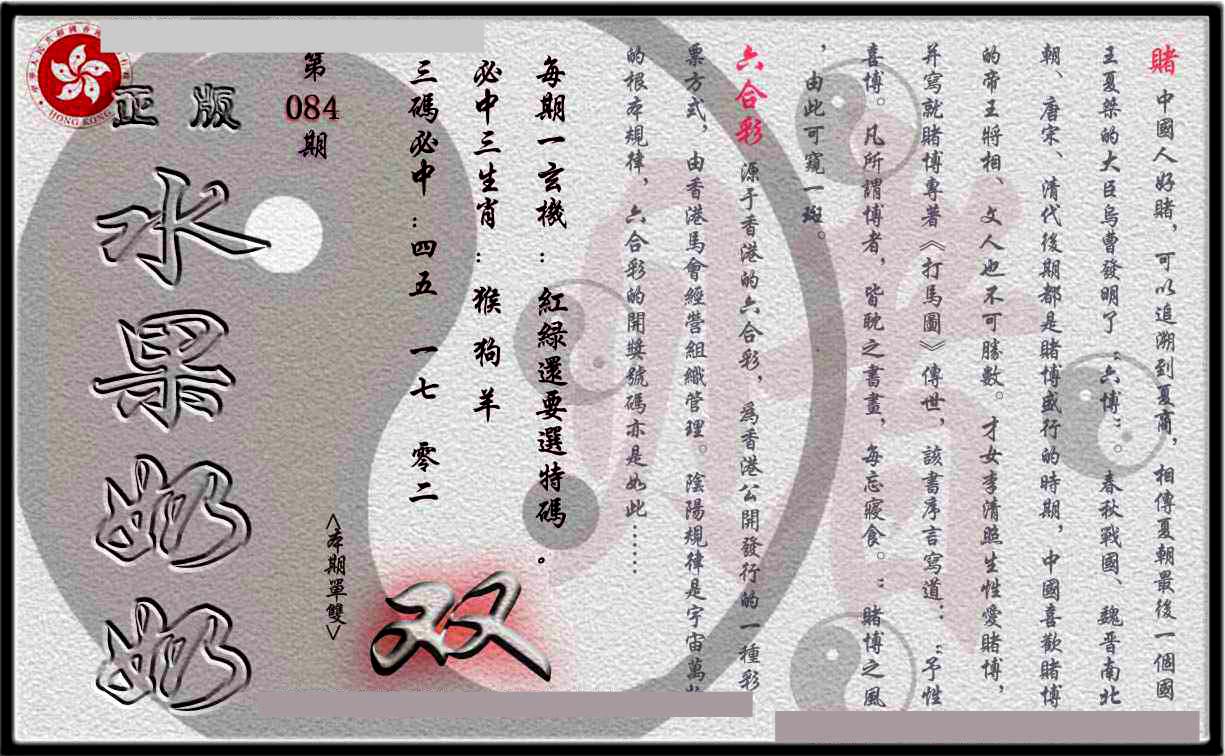 賭 中國人好賭，可以追溯到夏商，相傳夏朝最後一個國
王夏桀的大臣烏曹發明了“六博”。春秋戰國、魏晋南北
朝、唐宋、清代後期都是賭博盛行的時期，中國喜歡賭博
的帝王將相、文人也不可勝數。才女李清照生性愛賭博，
并寫就賭博專著《打馬圖》傳世，該書序言寫道：“予性
喜博。凡所謂博者，皆耽之書畫，每忘寢食。”賭博之風
，由此可窺一斑。
六合彩 源于香港的六合彩，為香港公開發行的一種彩
票方式，由香港馬會經營組織管理。陰陽規律是宇宙萬物
的根本規律，六合彩的開獎號碼亦是如此……
每期一玄機：紅綠還要選特碼。
必中三生肖：猴狗羊
三碼必中：四五 一七 零二
双
<本期單雙>
第084期
正版
水果奶奶
HONG KONG